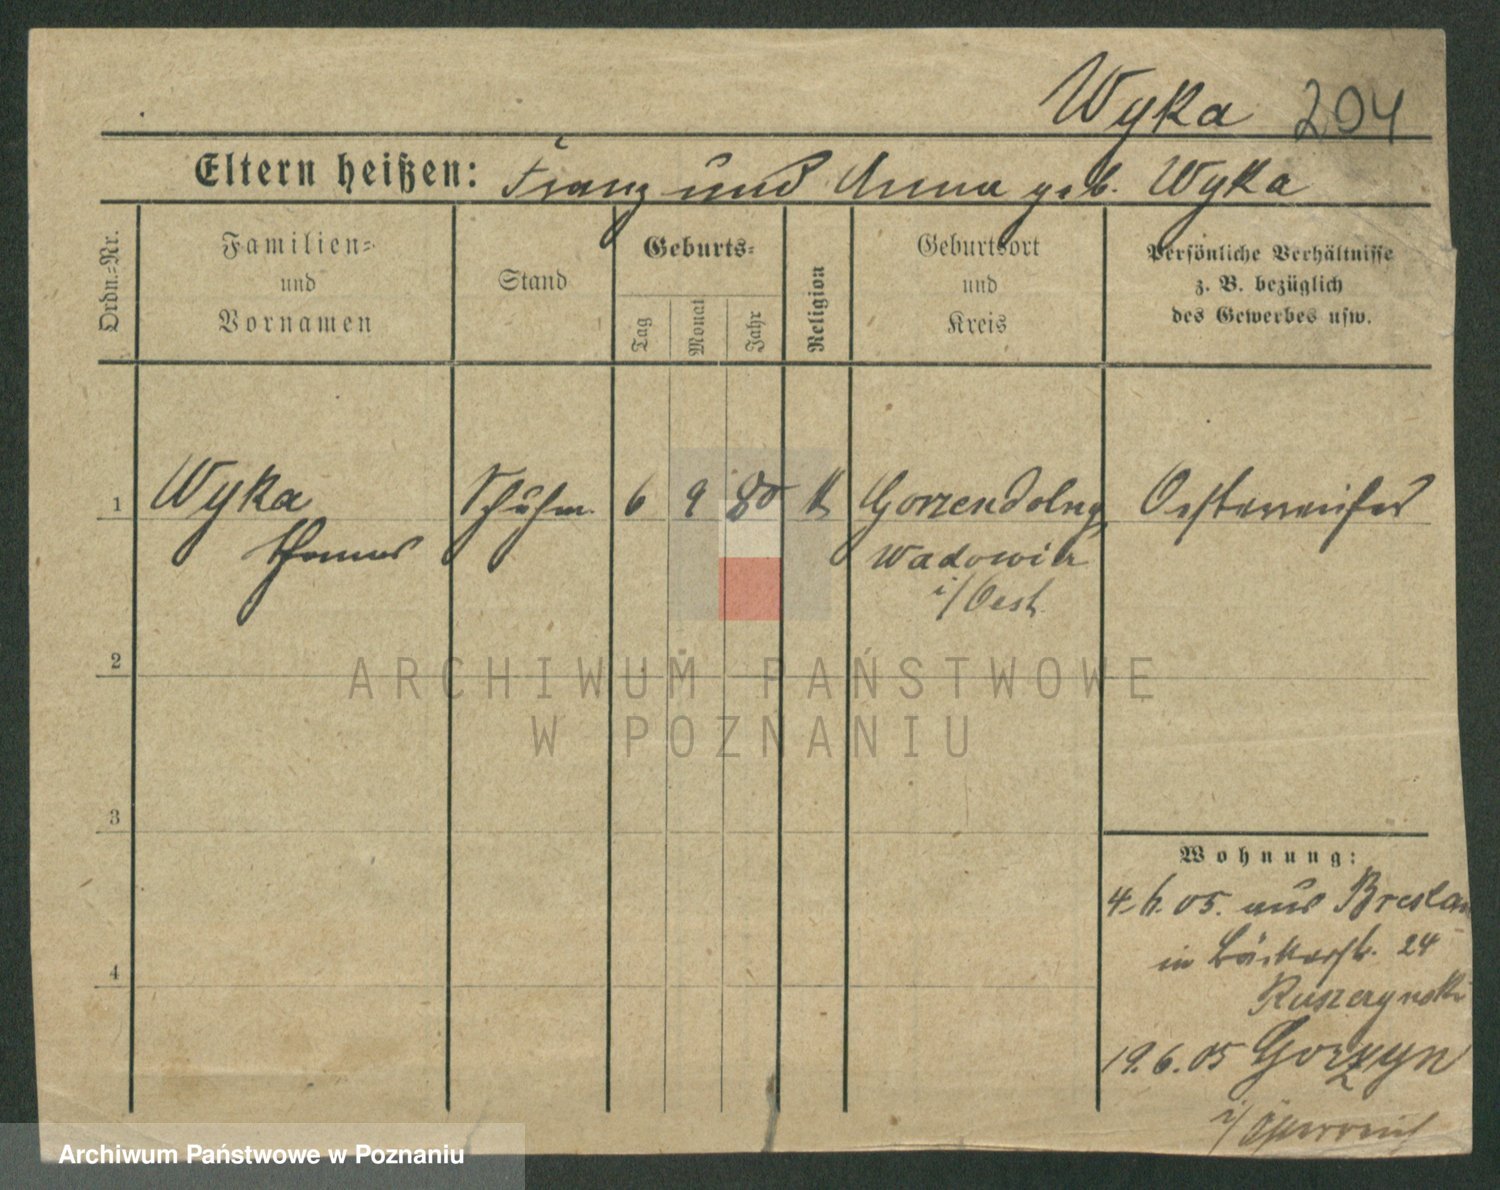 Wyka 204
Eltern heißen: Franz und Anna geb. Wyka
Ordn.=Nr.
Familien=
und
Vornamen
Stand
Geburts=
Tag
Monat
Jahr
Religion
Geburtsort
und
Kreis
Persönliche Verhältnisse
z. B. bezüglich
des Gewerbes usw.
1 Wyka Schuhm. 6 9 80 K Oesterreicher
Thomas
Wadowitz
i/Oest.
2
3
4
Wohnung:
4. 6. 05. aus Breslau
in Bäckerstr. 24
Ruszczynski
19. 6. 05 Gorzyn
i/
ARCHIWUM PAŃSTWOWE
W POZNANIU
Archiwum Państwowe w Poznaniu